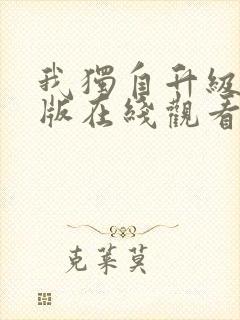 我獨自升級
版在綫觀看
克萊莫